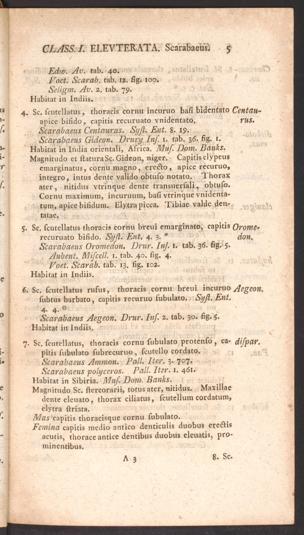 CLASS. I. ELEVTERATA. Scarabaeus. 5
Edw. Av. tab. 40.
Voet. Scarab. tab. 12. fig. 109.
Seligm. Av. 2. tab. 79.
Habitat in Indiis.
4. Sc. scutellatus, thoracis cornu incuruo basi bidentato Centau-
apice bifido, capitis recuruato vnidentato. rus.
Scarabaeus Centaurus. Syst. Ent. 8. 19.
Scarabaeus Gideon. Drury Ins. 1. tab. 36. fig. 1.
Habitat in India orientali, Africa. Mus. Dom. Banks.
Magnitudo et statura Sc. Gideon, niger. Capitis clypeus
emarginatus, cornu magno, erecto, apice recuruo,
integro, intus dente valido obtuso notato. Thorax
ater, nitidus vtrinque dente transuersali, obtuso.
Cornu maximum, incuruum, basi vtrinque vnidenta-
tum, apice bifidum. Elytra picea. Tibiae valde den-
tatae.
5. Sc. scutellatus thoracis cornu breui emarginato, capitis Orome-
recuruato bifido. Syst. Ent. 4. 3. * don.
Scarabaeus Oromedon. Drur. Ins. 1. tab. 36. fig. 5.
Aubent. Miscell. 1. tab. 40. fig. 4.
Voet. Scarab. tab. 13. fig. 102.
Habitat in Indiis.
6. Sc. scutellatus rufus, thoracis cornu breui incuruo Aegeon.
subtus barbato, capitis recuruo subulato. Syst. Ent.
4. 4. *
Scarabaeus Aegeon. Drur. Ins. 2. tab. 30. fig. 5.
Habitat in Indiis.
7. Sc. scutellatus, thoracis cornu subulato protenso, ca- dispar.
pitis subulato subrecuruo, scutello cordato.
Scarabaeus Ammon. Pall. Iter. 3. 707.
Scarabaeus polyceros. Pall. Iter. 1. 461.
Habitat in Sibiria. Mus. Dom. Banks.
Magnitudo Sc. stercorarii, totus ater, nitidus. Maxillae
dente eleuato, thorax ciliatus, scutellum cordatum,
elytra striata.
Mas capitis thoracisque cornu subulato.
Femina capitis medio antico denticulis duobus erectis
acutis, thorace antice dentibus duobus eleuatis, pro-
minentibus.
A 3 8. Sc.